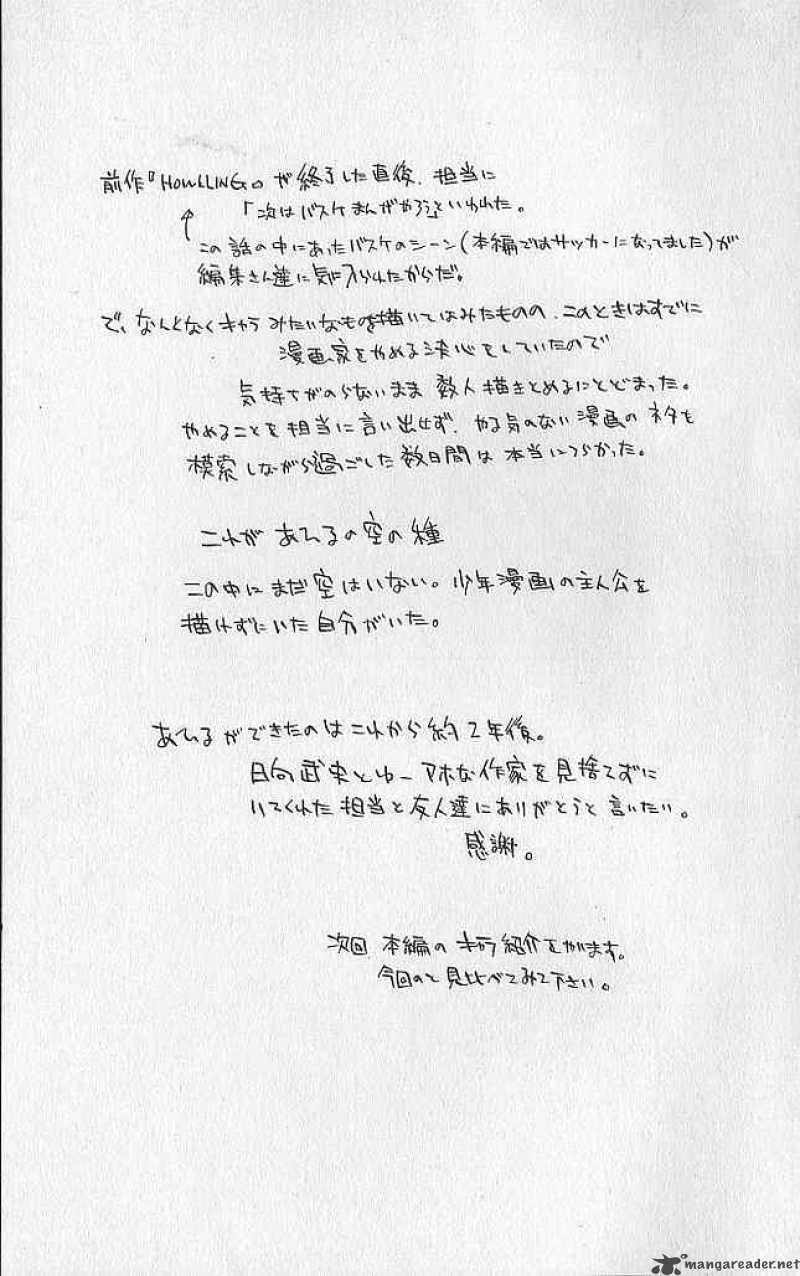 前作『HOWLLING』が終了した直後、担当に
「次はバスケまんがやろう」といわれた。
↑
この話の中にあったバスケのシーン(本編ではサッカーになってました)が
編集さん達に気に入られたからだ。
で、なんとなくキャラみたいなものを描いてはみたものの、このときはすでに
漫画家をやめる決心をしていたので
気持ちがのらないまま数人描きとめるにとどまった。
やめることを担当に言い出せず、やる気のない漫画のネタを
模索しながら過ごした数日間は本当につらかった。
これがあひるの空の種
この中にまだ空はいない。少年漫画の主人公を
描けずにいた自分がいた。
あひるができたのはこれから約2年後。
日向武史とゆーアホな作家を見捨てずに
いてくれた担当と友人達にありがとうと言いたい。
感謝。
次回、本編のキャラ紹介をやります。
今回のと見比べてみて下さい。
mangareader.net